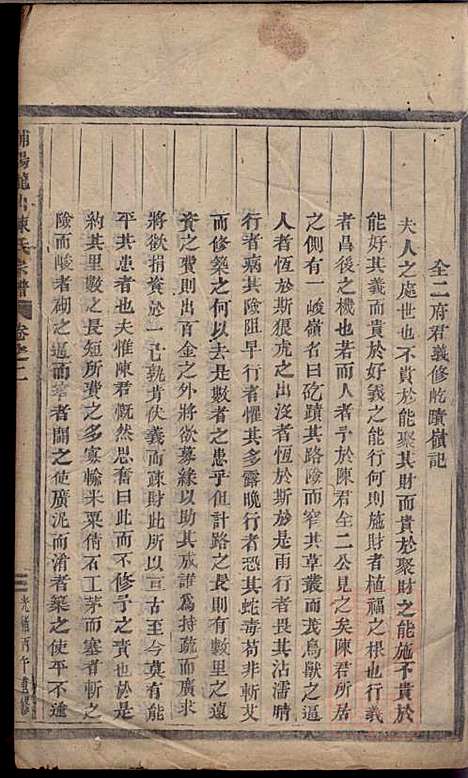 全二府君義修屹蹟嶺記
夫人之處世也不貴於能聚其財而貴於聚財之能施不貴於
能好其義而貴於好義之能行何則施財者植福之根也行義
者昌後之機也若而人者予於陳君全二公見之矣陳君所居
之側有一峻嶺名曰屹蹟其路險而窄其草叢而茂鳥獸之逼
人者恆於斯猥虎之出沒者恆於斯於是雨行者畏其沾濡晴
行者病其險阻早行者懼其多露晚行者恐其蛇毒苟非斬艾
而修築之何以去是數者之患乎但計路之長則有數里之遠
資之費則出百金之外將欲募緣以助其成誰為持疏而廣求
將欲捐資於一己孰肯伏義而疎財此所以亘古至今莫有能
平其患者也夫惟陳君慨然思奮曰此而不修予之責也於是
約其里數之長短所費之多寡輸米粟倩石工茅而塞者斬之
險而峻者砌之逼而窄者闢之使廣泥而滑者築之使平不逾
浦陽龍山陳氏宗譜
卷之二
光緒丙午重修